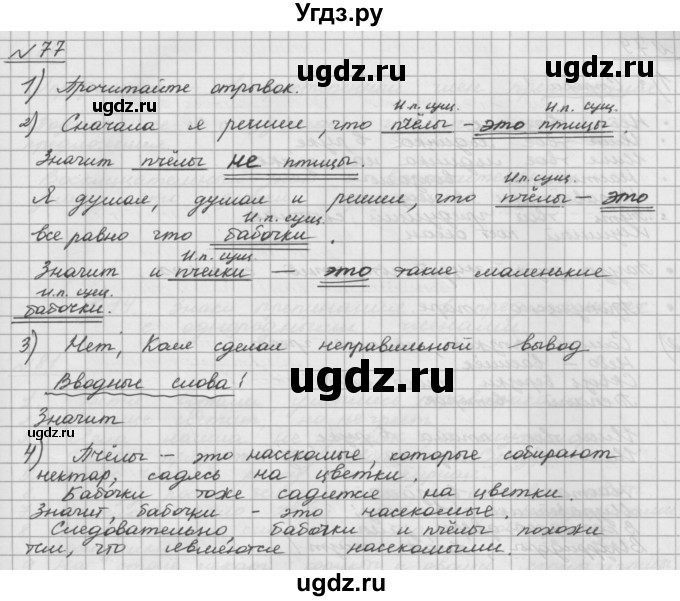 Угдз.ру
№ 77
1) Прочитайте отрывок.
И.п. сущ. И.п. сущ.
2) Сначала я решил, что пчёлы – это птицы.
Значит пчёлы не птицы.
И.п. сущ.
Я думал, думал и решил, что пчёлы – это
И.п. сущ.
все равно что бабочки.
И.п. сущ.
Значит и пчелки — это такие маленькие
И.п. сущ.
бабочки.
3) Нет, Коля сделал неправильный вывод
Вводные слова!
Значит
4) Пчёлы – это насекомые, которые собирают
нектар, садясь на цветки.
Бабочки тоже садятся на цветки.
Значит, бабочки – это насекомые.
Следовательно, бабочки и пчёлы похожи
тем, что являются насекомыми.
ugdz.ru
ugdz.ru
ugdz.ru
ugdz.ru
ugdz.ru
ugdz.ru
ugdz.ru
ugdz.ru
ugdz.ru
ugdz.ru